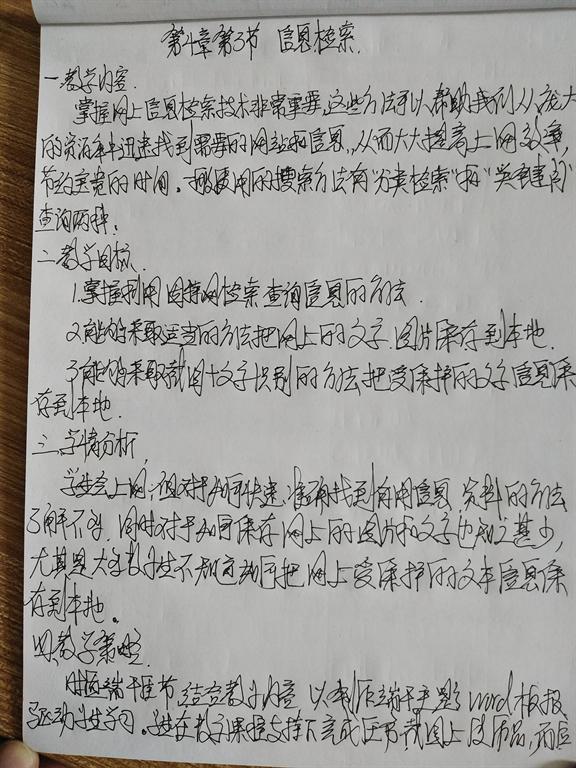 第4章第3节 信息检索.
一教学内容.
掌握网上信息检索技术非常重要,这些方法可以帮助我们从庞大
的资源库中迅速找到需要的网站和信息,从而大大提高上网效率,
节约宝贵的时间。 使用的搜索方法有"分类检索"和"关键词"
查询两种.
二教学目标.
1.掌握利用因特网检索查询信息的方法.
2.能够采取适当的方法把网上的文字、图片保存到本地.
3.能够采取截图+文字识别的方法把受保护的文字信息保
存到本地.
三.学情分析,
学生会上网,但对于如何快速、准确找到有用信息、资料的方法
了解不多,同时对于如何保存网上的图片和文字也知之甚少,
尤其是大多数学生不知道如何把网上受保护的文本信息保
存到本地。
四教学策略.
时逢端午佳节,结合教学内容,以制作端午主题word板报
驱动学生学习。 在 支持下完成 网上 作品,而